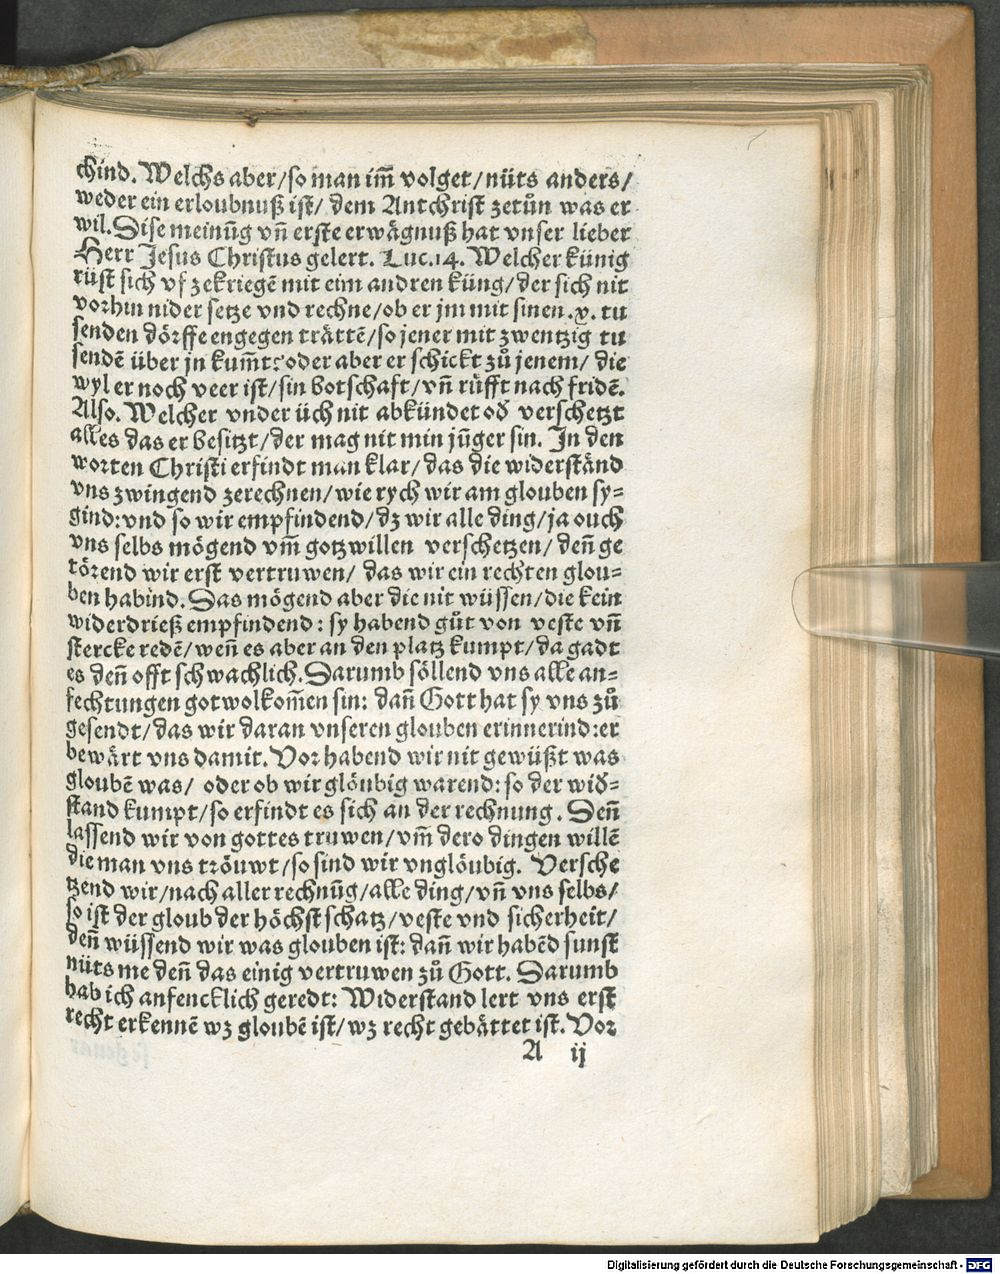 chind. Welchs aber/so man im̄ volget/nüts anders/
weder ein erloubnuß ist/ dem Antchrist zetůn was er
wil. Dise meinūg vn̄ erste erwägnuß hat vnser lieber
Herr Jesus Christus gelert. Luc.14. Welcher künig
rüst sich vf zekriegē mit eim andren küng/der sich nit
vorhin nider setze vnd rechne/ob er jm mit sinen .x. tu
senden dörffe engegen trättē/so jener mit zwentzig tu
sendē über jn kum̄t: oder aber er schickt zů jenem/ die
wyl er noch veer ist/sin botschaft/vn̄ rüfft nach fridē.
Also. Welcher vnder üch nit abkündet od̛ verschetzt
alles das er besitzt/der mag nit min jūger sin. In den
worten Christi erfindt man klar/das die widerständ
vns zwingend zerechnen/wie rych wir am glouben sy-
gind: vnd so wir empfindend/dz wir alle ding/ja ouch
vns selbs mögend vm̄ gotzwillen verschetzen/ den̄ ge
törend wir erst vertruwen/ das wir ein rechten glou-
ben habind. Das mögend aber die nit wüssen/die kein
widerdrieß empfindend: sy habend gůt von veste vn̄
stercke redē/wen̄ es aber an den platz kumpt/da gadt
es den̄ offt schwachlich. Darumb söllend vns alle an-
fechtungen gotwolkom̄en sin: dan̄ Gott hat sy vns zů
gesendt/das wir daran vnseren glouben erinnerind: er
bewärt vns damit. Vor habend wir nit gewüßt was
gloubē was/ oder ob wir glöubig warend: so der wid̛-
stand kumpt/so erfindt es sich an der rechnung. Den̄
lassend wir von gottes truwen/vm̄ dero dingen willē
die man vns tröuwt/so sind wir vnglöubig. Versche
tzend wir/nach aller rechnūg/alle ding/vn̄ vns selbs/
so ist der gloub der höchst schatz/veste vnd sicherheit/
den̄ wüssend wir was glouben ist: dan̄ wir habēd sunst
nüts me den̄ das einig vertruwen zů Gott. Darumb
hab ich anfencklich geredt: Widerstand lert vns erst
recht erkennē wz gloubē ist/wz recht gebättet ist. Vor
A ij
Digitalisierung gefördert durch die Deutsche Forschungsgemeinschaft - DFG